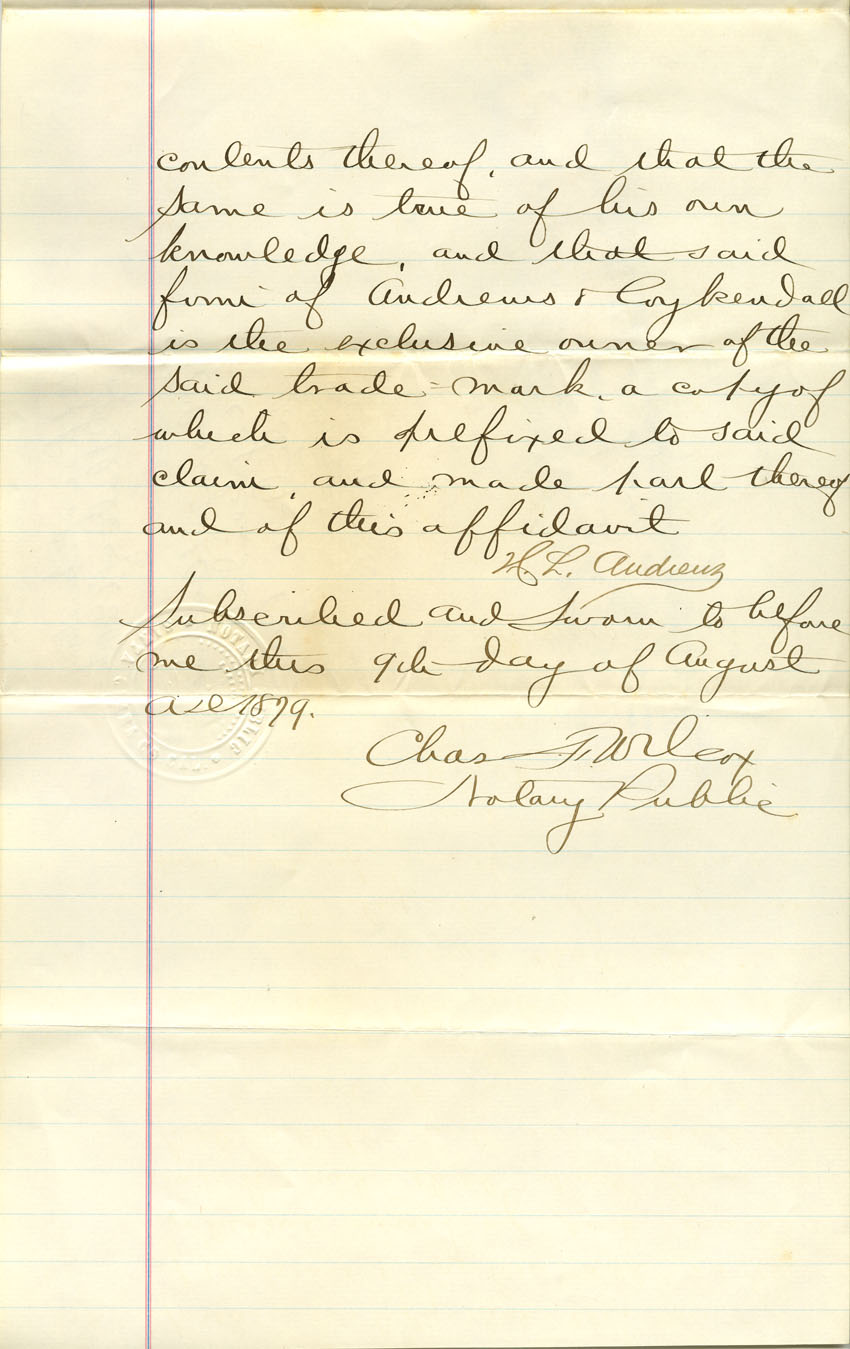 contents thereof, and that the
same is true of his own
knowledge, and that said
firm of Andrews & Coykendall
is the exclusive owner of the
said trade-mark, a copy of
which is prefixed to said
claim, and made part thereof
and of this affidavit
H. L. Andrews
Subscribed and Sworn to before
me this 9th day of August
AD 1879.
Chas F. Wilcox
Notary Public